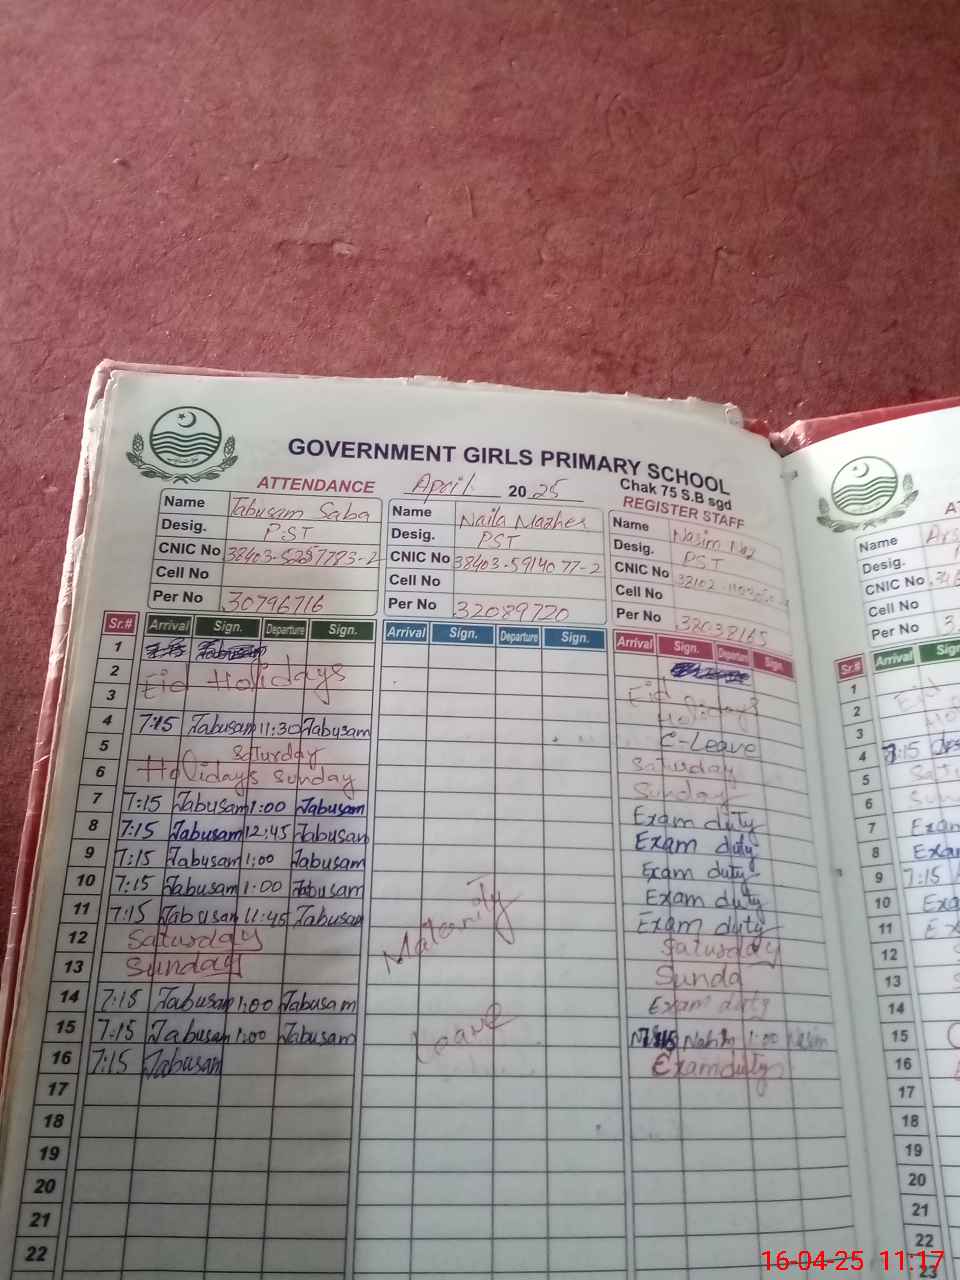 GOVERNMENT GIRLS PRIMARY SCHOOL
Chak 75 S.B sgd
ATTENDANCE April 2025 REGISTER STAFF
Name Tabusam Saba
Desig. PST
CNIC No 38403-5257783-2
Cell No
Per No 30796716
Name Naila Mazher
Desig. PST
CNIC No 38403-5914077-2
Cell No
Per No 32089720
Name Nasim Naz
Desig. PST
CNIC No
Cell No
Per No 32038165
Sr.# Arrival Sign. Departure Sign. Arrival Sign. Departure Sign. Arrival Sign. Departure Sign.
1
2 Eid Holidays Eid
3 Holidays
4 7:15 Tabusam 11:30 Tabusam C-Leave
5 Saturday Saturday
6 Holidays Sunday Sunday
7 7:15 Tabusam 1:00 Tabusam Exam duty
8 7:15 Tabusam 12:45 Tabusam Exam duty
9 7:15 Tabusam 1:00 Tabusam Exam duty
10 7:15 Tabusam 1:00 Tabusam Exam duty
11 7:15 Tabusam 11:45 Tabusam Exam duty
12 Saturday Maternity Saturday
13 Sunday Sunda
14 7:15 Tabusam 1:00 Tabusam Exam duty
15 7:15 Tabusam 1:00 Tabusam Leave 1:00 Nasim
16 7:15 Tabusam Exam duty
17
18
19
20
21
22
Name
Desig.
CNIC No
Cell No
Per No
Sr.# Arrival
1
2
3
4 7:15
5
6
7 Exam
8 Exa
9 7:15
10 Exa
11 Ex
12
13
14
15
16
17
18
19
20
21
22
23
16-04-25 11:17